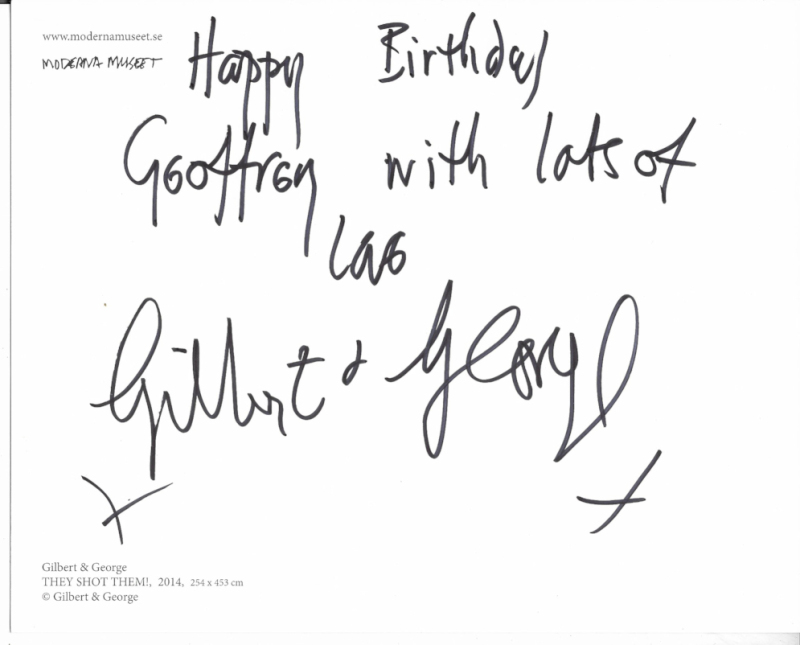 www.modernamuseet.se
MODERNA MUSEET
Happy Birthday
Geoffrey with lots of
Gilbert & George
x x
Gilbert & George
THEY SHOT THEM!, 2014, 254 x 453 cm
© Gilbert & George